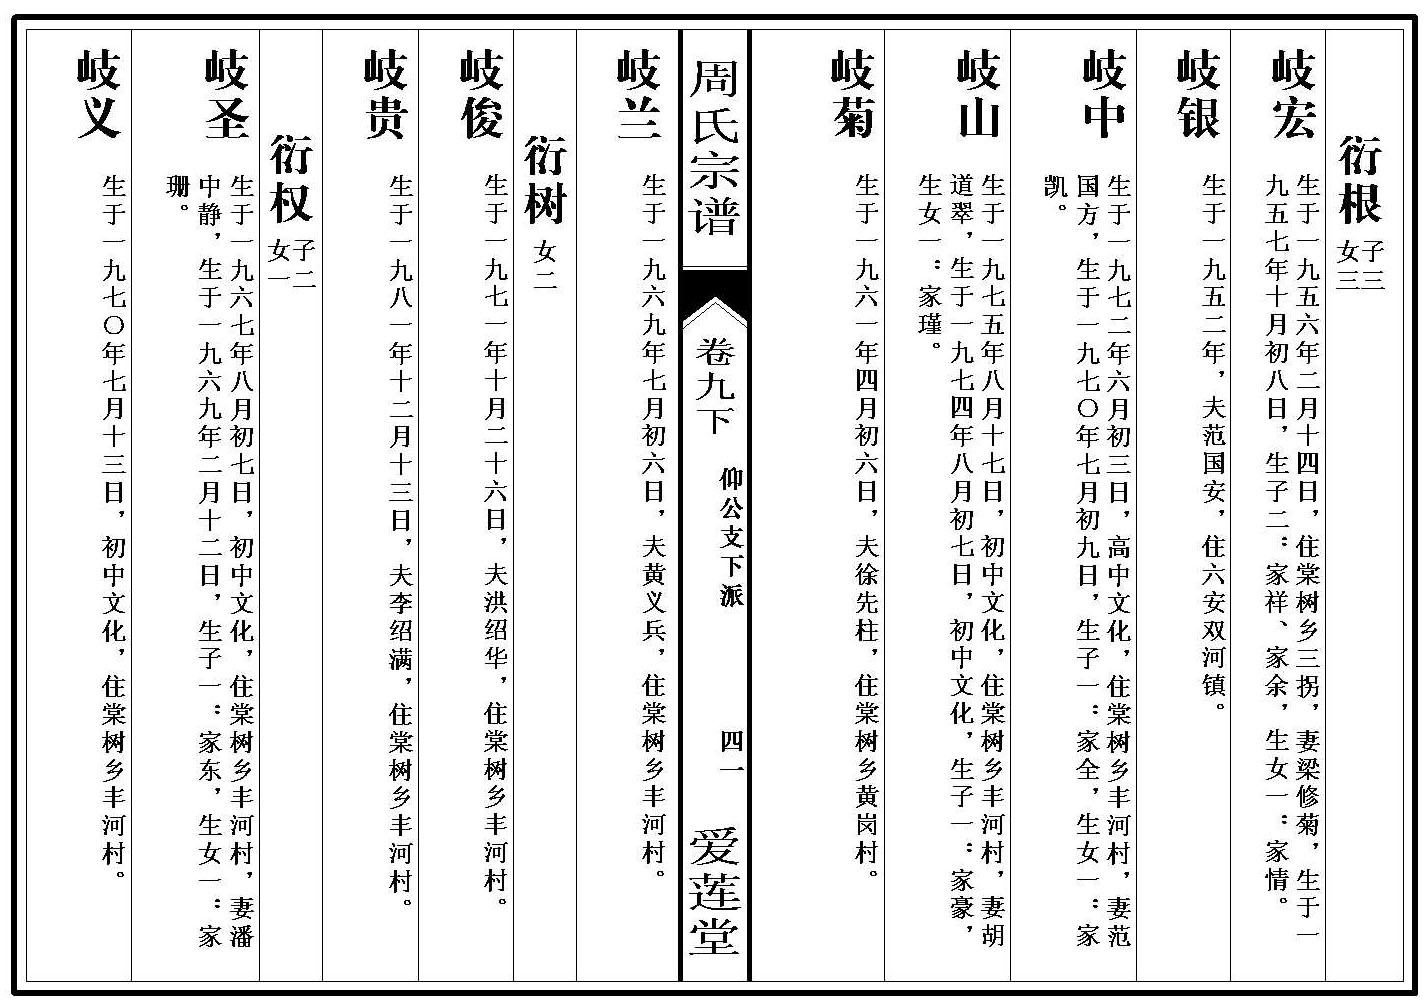 衍根
子三
女三
岐宏
生于一九五六年二月十四日，住棠树乡三拐，妻梁修菊，生于一
九五七年十月初八日，生子二：家祥、家余，生女一：家情。
岐银
生于一九五二年，夫范国安，住六安双河镇。
岐中
生于一九七二年六月初三日，高中文化，住棠树乡丰河村，妻范
国方，生于一九七〇年七月初九日，生子一：家全，生女一：家
凯。
岐山
生于一九七五年八月十七日，初中文化，住棠树乡丰河村，妻胡
道翠，生于一九七四年八月初七日，初中文化，生子一：家豪，
生女一：家瑾。
岐菊
生于一九六一年四月初六日，夫徐先柱，住棠树乡黄岗村。
周氏宗谱
卷九下
仰公支下派
四一
爱莲堂
岐兰
生于一九六九年七月初六日，夫黄义兵，住棠树乡丰河村。
衍树
女二
岐俊
生于一九七一年十月二十六日，夫洪绍华，住棠树乡丰河村。
岐贵
生于一九八一年十二月十三日，夫李绍满，住棠树乡丰河村。
衍权
子二
女一
岐圣
生于一九六七年八月初七日，初中文化，住棠树乡丰河村，妻潘
中静，生于一九六九年二月十二日，生子一：家东，生女一：家
珊。
岐义
生于一九七〇年七月十三日，初中文化，住棠树乡丰河村。